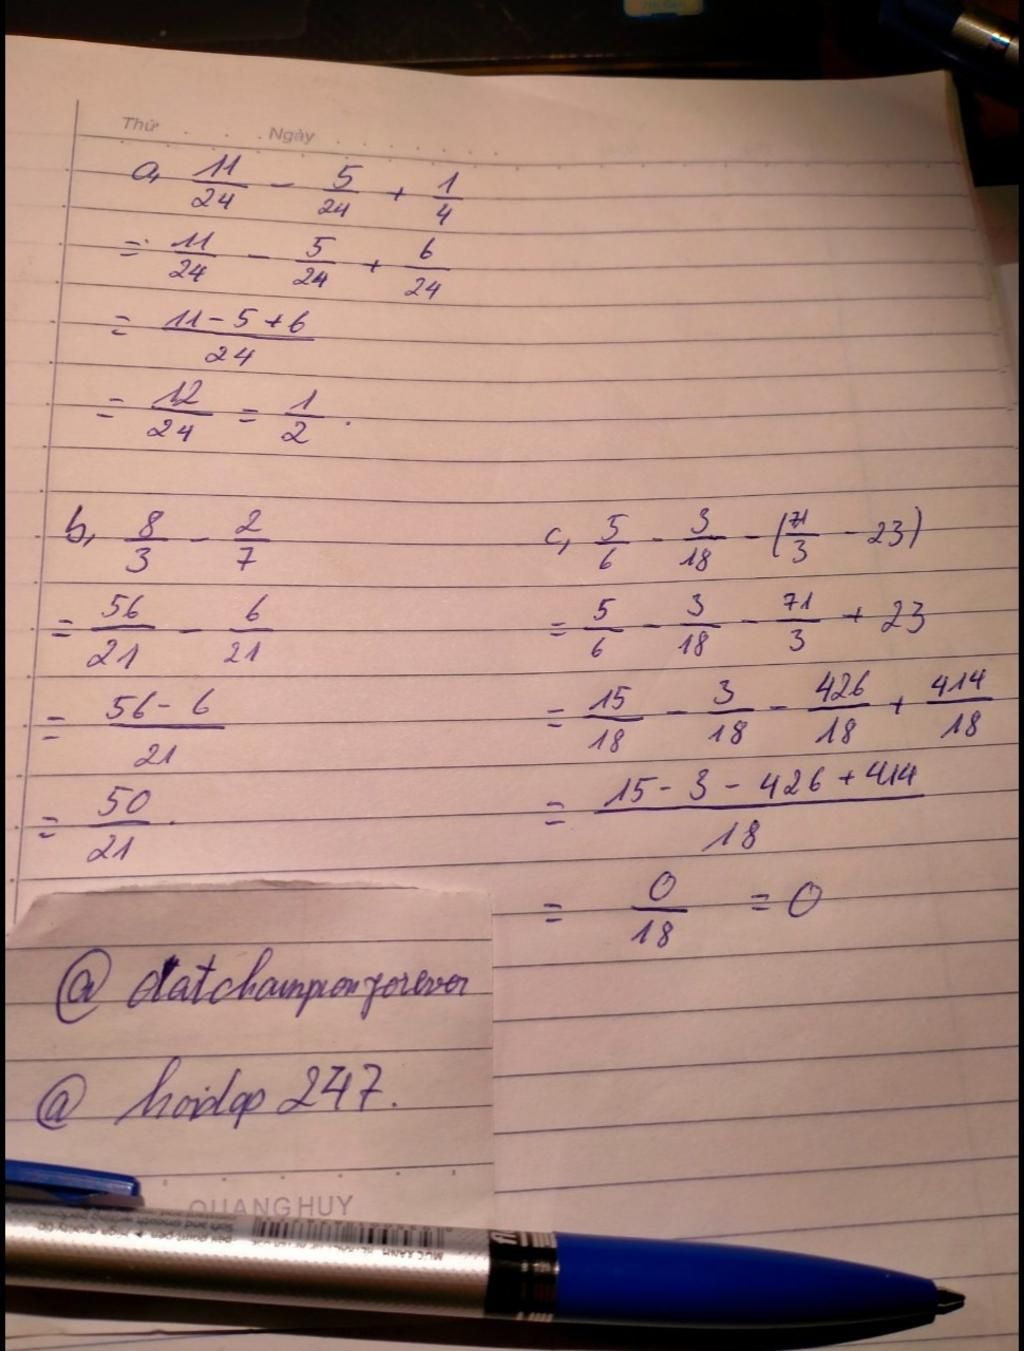 Thứ Ngày
a, 11/24 - 5/24 + 1/4
= 11/24 - 5/24 + 6/24
= (11 - 5 + 6)/24
= 12/24 = 1/2 .
b, 8/3 - 2/7
= 56/21 - 6/21
= (56 - 6)/21
= 50/21 .
c, 5/6 - 3/18 - (71/3 - 23)
= 5/6 - 3/18 - 71/3 + 23
= 15/18 - 3/18 - 426/18 + 414/18
= (15 - 3 - 426 + 414)/18
= 0/18 = 0
@ datchampionforever
@ hoidap 247.
QUANG HUY